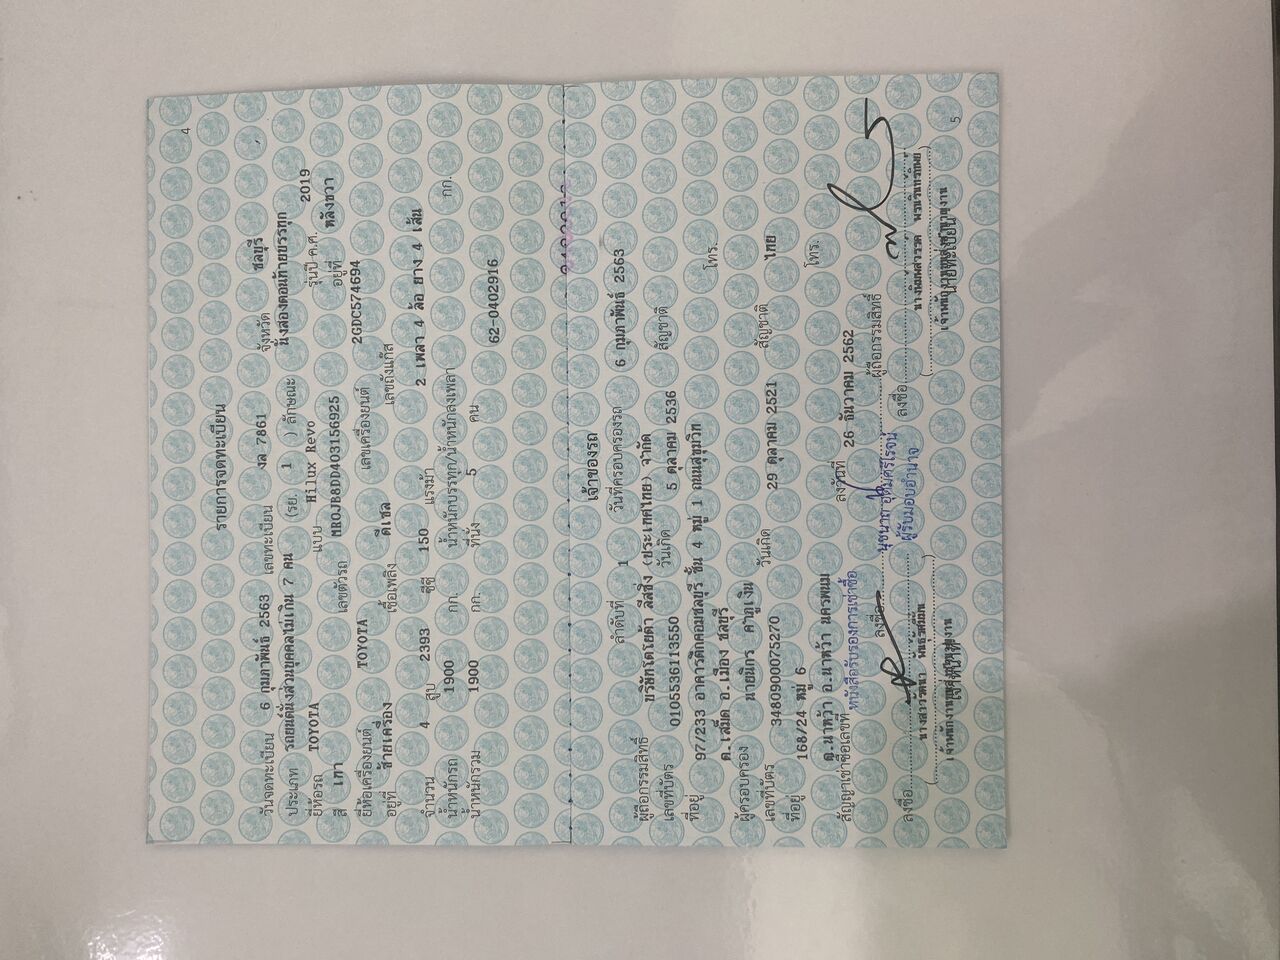 4
รายการจดทะเบียน
วันจดทะเบียน 6 กุมภาพันธ์ 2563 เลขทะเบียน งล 7861 จังหวัด ชลบุรี
ประเภท รถยนต์นั่งส่วนบุคคลไม่เกิน 7 คน (รย. 1 ) ลักษณะ นั่งสองตอนท้ายบรรทุก
ยี่ห้อรถ TOYOTA แบบ Hilux Revo รุ่นปี ค.ศ. 2019
สี เทา เลขตัวรถ MR0JB8DD403156925 อยู่ที่ หลังขวา
ยี่ห้อเครื่องยนต์ TOYOTA เลขเครื่องยนต์ 2GDC574694
อยู่ที่ ซ้ายเครื่อง เชื้อเพลิง ดีเซล เลขถังแก๊ส
จำนวน 4 สูบ 2393 ซีซี 150 แรงม้า 2 เพลา 4 ล้อ ยาง 4 เส้น
น้ำหนักรถ 1900 กก. น้ำหนักบรรทุก/น้ำหนักลงเพลา กก.
น้ำหนักรวม 1900 กก. ที่นั่ง 5 คน 62-0402916
เจ้าของรถ
ลำดับที่ 1 วันที่ครอบครองรถ 6 กุมภาพันธ์ 2563
ผู้ถือกรรมสิทธิ์ บริษัทโตโยต้า ลีสซิ่ง (ประเทศไทย) จำกัด
เลขที่บัตร 0105536113550 วันเกิด 5 ตุลาคม 2536 สัญชาติ
ที่อยู่ 97/233 อาคารติกคอมชลบุรี ชั้น 4 หมู่ 1 ถนนสุขุมวิท โทร.
ต.เสม็ด อ.เมือง ชลบุรี
ผู้ครอบครอง นายนิกร คำภูเงิน
เลขที่บัตร 3480900075270 วันเกิด 29 ตุลาคม 2521 สัญชาติ ไทย
ที่อยู่ 168/24 หมู่ 6
ต.นาหว้า อ.นาหว้า นครพนม โทร.
สัญญาเช่าซื้อเลขที่ หนังสือรับรองการเช่าซื้อ ลงวันที่ 26 ธันวาคม 2562
ลงชื่อ ผู้ถือกรรมสิทธิ์
ผู้รับมอบอำนาจ
ลงชื่อ ลงชื่อ
นายทะเบียน
5